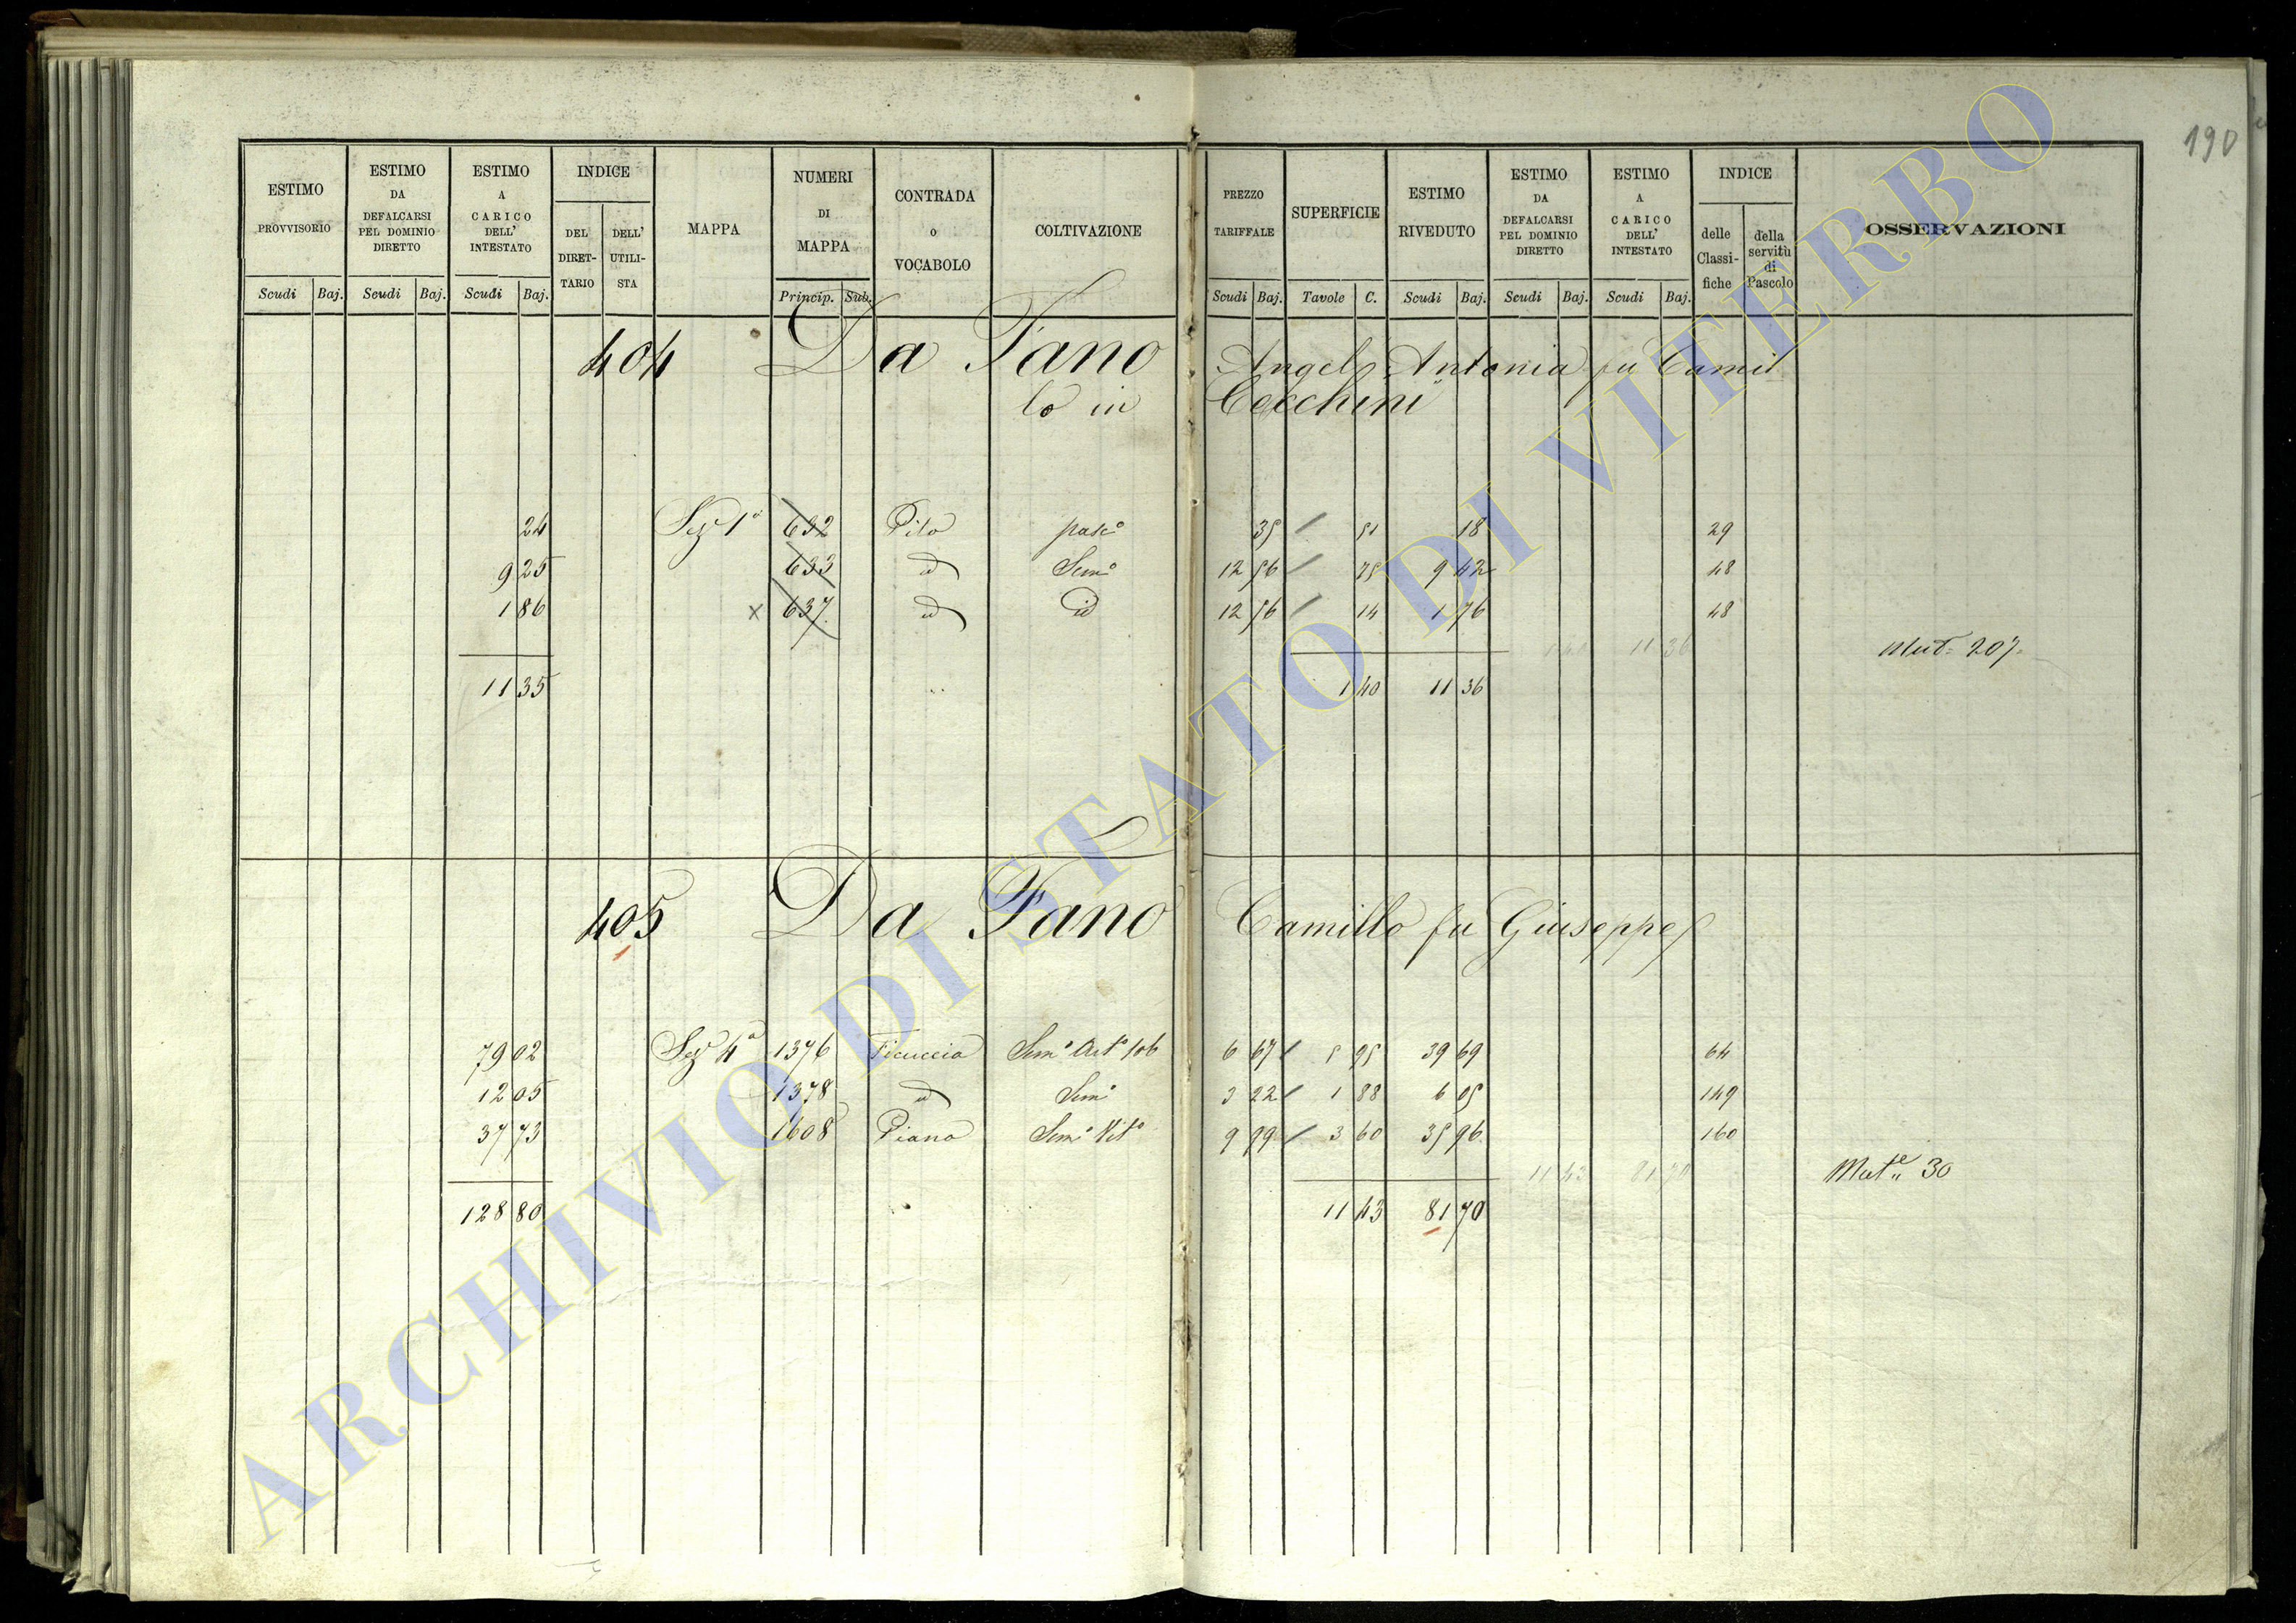 190
ESTIMO PROVVISORIO Scudi Baj.
ESTIMO DA DEFALCARSI PEL DOMINIO DIRETTO Scudi Baj.
ESTIMO A CARICO DELL' INTESTATO Scudi Baj.
INDICE DEL DIRET-TARIO DELL' UTILI-STA
MAPPA
NUMERI DI MAPPA Princip. Sub.
CONTRADA o VOCABOLO
COLTIVAZIONE
PREZZO TARIFFALE Scudi Baj.
SUPERFICIE Tavole C.
ESTIMO RIVEDUTO Scudi Baj.
ESTIMO DA DEFALCARSI PEL DOMINIO DIRETTO Scudi Baj.
ESTIMO A CARICO DELL' INTESTATO Scudi Baj.
INDICE delle Classi-fiche della servitù di Pascolo
OSSERVAZIONI
404 Da Fano Angela Antonia fu Camil
lo in Cecchini
24 Sez 1ª 632 Pilo pasc° 35 / 51 18 29
9 25 633 id Sem° 12 56 / 75 9 42 48
1 86 x 637 id id 12 56 / 14 1 76 48
1 40 11 36 Mut. 207
11 35 1 40 11 36
405 Da Fano Camillo fu Giuseppe
79 02 Sez 4ª 1376 Ficuccia Sem° 6 67 / 5 95 39 69 64
12 05 1378 id Sem° 3 22 / 1 88 6 05 149
37 73 1608 Piana Sem° Vit° 9 99 / 3 60 35 96 160
11 43 81 70 Mut.e 30
128 80 11 43 81 70
ARCHIVIO DI STATO DI VITERBO